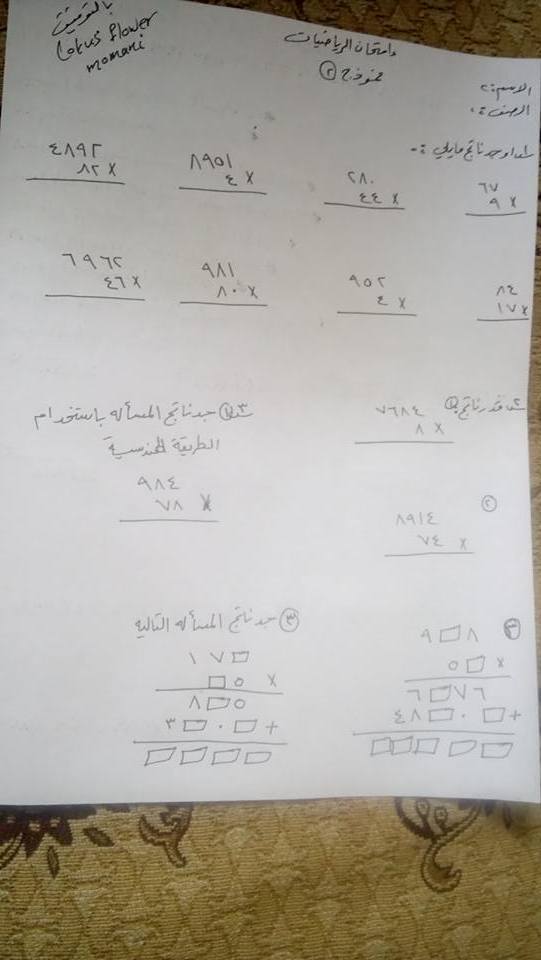 بالتوفيق
Lotus flower
momani
امتحان الرياضيات
نموذج (٢)
الاسم:
الصف:
س١ اوجد ناتج مايلي :-
٦٧
× ٩
٢٨٠
× ٤٤
٨٩٥١
× ٤
٤٨٩٢
× ٨٢
٨٤
× ١٧
٩٥٢
× ٤
٩٨١
× ٨٠
٦٩٦٢
× ٤٦
س٢ قدر ناتج
①
٧٦٨٤
× ٨
②
٨٩١٤
× ٧٤
س٣ ① جد ناتج المسألة باستخدام
الطريقة الهندسية
٩٨٤
× ٧٨
③
٩□٨
× ٥□
٦□٧٦
+ ٤٨□٠□
□□□□□
③ جد ناتج المسألة التالية
١٧□
× □٥
٨□٥
+ ٣□٠□
□□□□